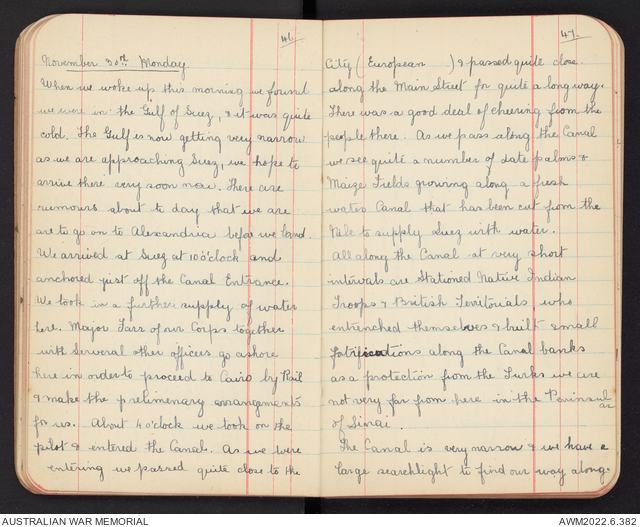 46.
November 30th Monday.
When we woke up this morning we found
we were in the Gulf of Suez, & it was quite
cold. The Gulf is now getting very narrow
as we are approaching Suez, we hope to
arrive there very soon now. There are
rumours about to day that we are
are to go on to Alexandria before we land.
We arrived at Suez at 10 o'clock and
anchored just off the Canal Entrance.
We took in a further supply of water
here. Major Lars of our Corps together
with Serveral other officers go ashore
here in order to proceed to Cairo by Rail
& make the prelimenary arrangements
for us. About 4 o'clock we took on the
pilot & entered the Canal. As we were
entering we passed quite close to the
47.
City (European ) & passed quite close
along the Main Street for quite a long way.
There was a good deal of cheering from the
people there. As we pass along the Canal
we see quite a number of date palms &
Maize Fields growing along a fresh
water Canal that has been cut from the
Nile to supply Suez with water.
All along the Canal at very short
intervals are Stationed Native Indian
Troops & British Territorials who
entrenched themselves & built small
fortifications along the Canal banks
as a protection from the Turks we are
not very far from here in the Peninsular
of Sinai.
The Canal is very narrow & we have a
large searchlight to find our way along.
AUSTRALIAN WAR MEMORIAL
AWM2022.6.382